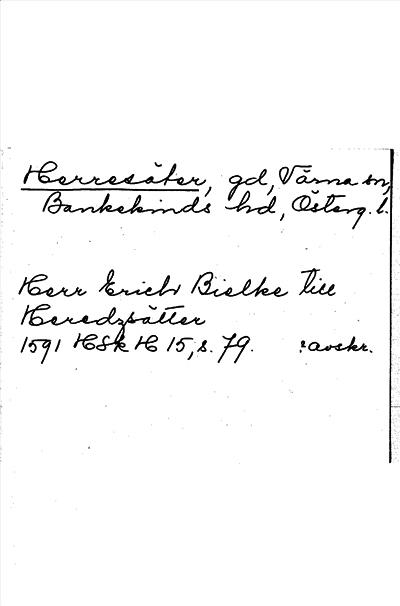 Herresäter, gd, Värna sn,
Bankekinds hd, Österg. l.
Herr Erich Bielke till
Heredzsätter
1591 HSk H 15, s. 79. :avskr.